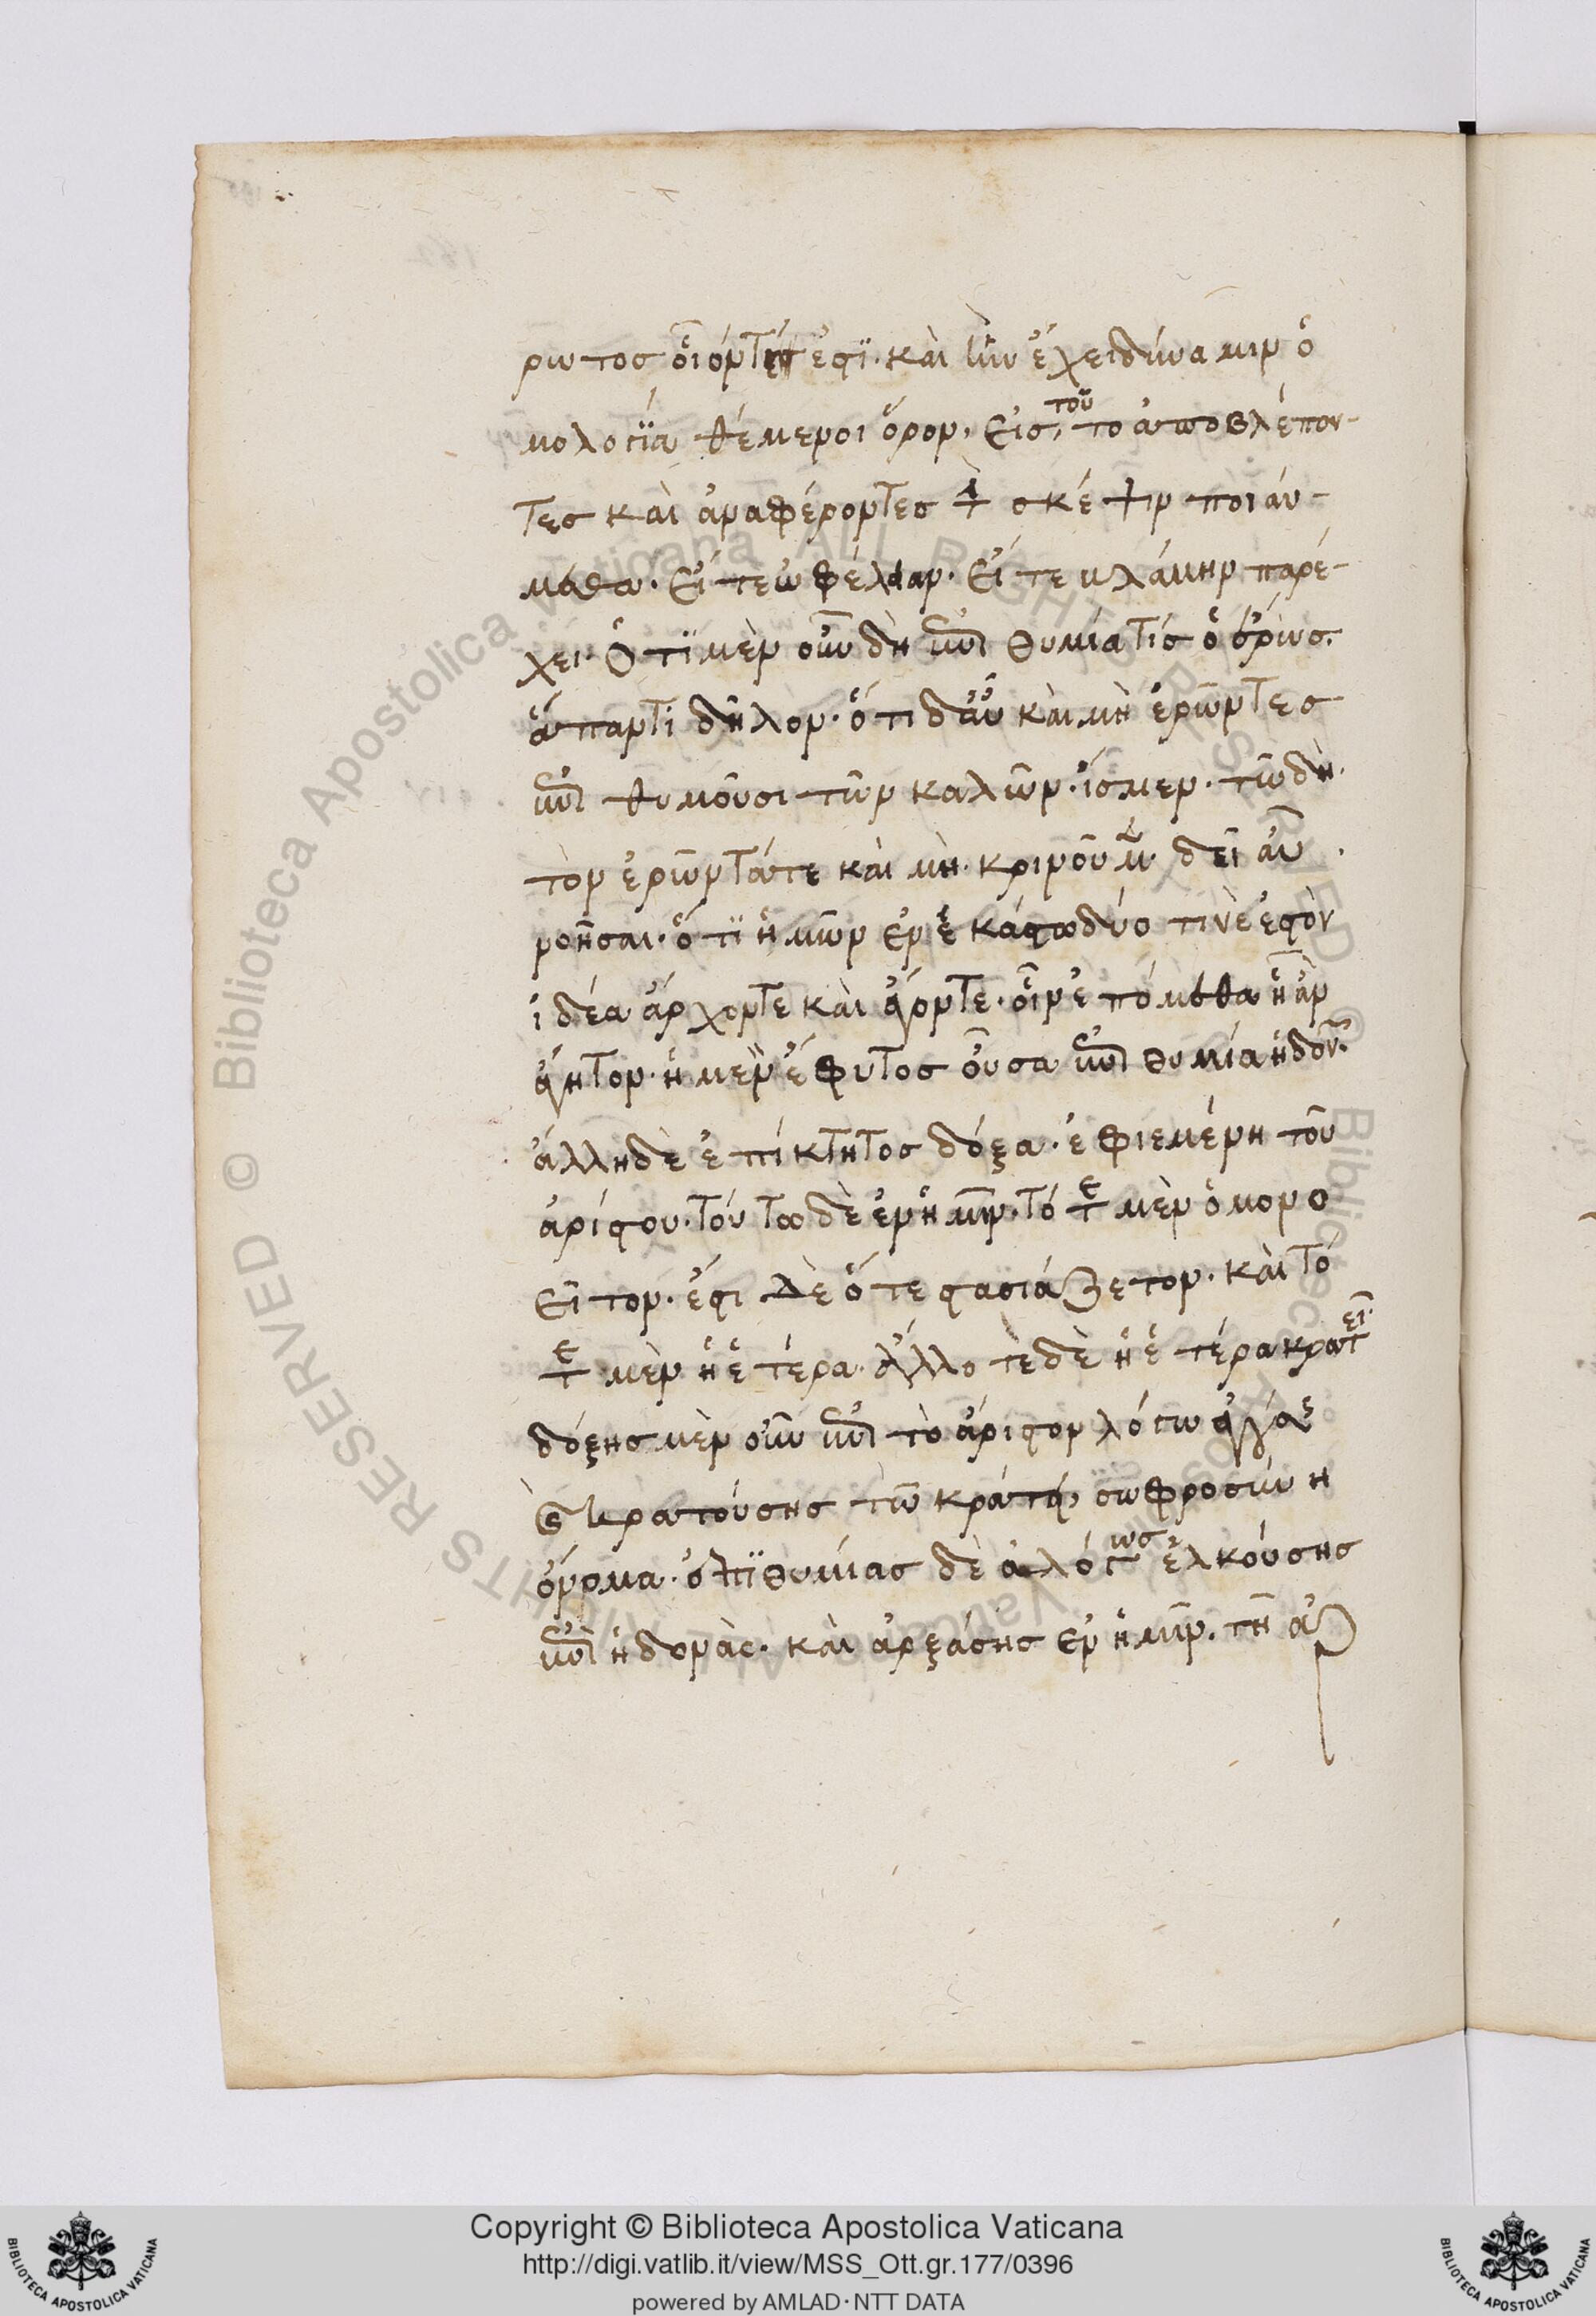 ρωτος οἷόντ' ἔστι· καὶ ἣν ἔχει δύναμιν ὁ
μολογία θέμενοι ὅρον, εἰς τοῦτο ἀποβλέπον-
τες καὶ ἀναφέροντες τὴν σκέψιν ποιού-
μεθα· εἴτε ὠφέλειαν· εἴτε βλάβην παρέ-
χει· ὅτι μὲν οὖν δὴ ἐπιθυμία τίς ὁ ἔρως.
ἅπαντι δῆλον· ὅτι δ' αὖ καὶ μὴ ἐρῶντες
ἐπιθυμοῦσι τῶν καλῶν· ἴσμεν· τῶ δὴ
τὸν ἐρῶντά τε καὶ μὴ κρινοῦμεν· δεῖ αὖ
νοῆσαι· ὅτι ἡμῶν ἐν ἑκάστω δύο τινέ ἐστὸν
ἰδέα ἄρχοντε καὶ ἄγοντε· οἷν ἑπόμεθα ἧ ἂν
ἄγητον· ἡ μὲν ἔμφυτος οὖσα ἐπιθυμία ἡδονῶν·
ἄλλη δὲ ἐπίκτητος δόξα· ἐφιεμένη τοῦ
ἀρίστου· τούτω δὲ ἐν ἡμῖν· τότε μὲν ὁμονο
εῖτον· ἔστι δὲ ὅτε στασιάζετον· καὶ τό
τε μὲν ἡ ἑτέρα· ἄλλοτε δὲ ἡ ἑτέρα κρατεῖ·
δόξης μὲν οὖν ἐπὶ τὸ ἄριστον λόγω ἀγούσης
καὶ κρατούσης τῶ κράτει, σωφροσύνη
ὄνομα· ἐπιθυμίας δὲ ἀλόγως ἑλκούσης
ἐπὶ ἡδονὰς· καὶ ἀρξάσης ἐν ἡμῖν· τῆ ἀρ
Copyright © Biblioteca Apostolica Vaticana
http://digi.vatlib.it/view/MSS_Ott.gr.177/0396
powered by AMLAD·NTT DATA